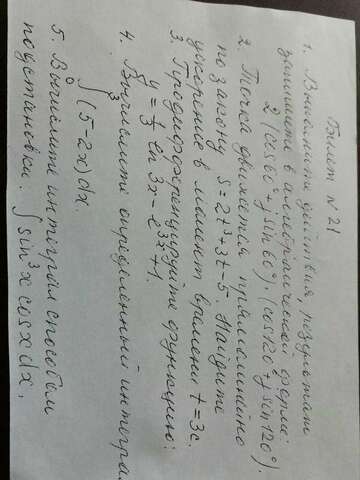 Билет № 21
1. Выполнить действия результат
записать в алгебраической форме:
2(cos60°+j sin60°)·(cos120°+j sin120°).
2. Точка движется прямолинейно
по закону S=2t³+3t-5. Найдите
ускорение в момент времени t=3c.
3. Продифференцируйте функцию:
y=⅓ ln 3x-e³ˣ+1.
4. Вычислите определенный интеграл
∫₃⁰(5-2x)dx.
5. Вычислите интеграл способом
подстановки. ∫sin³x cosxdx.